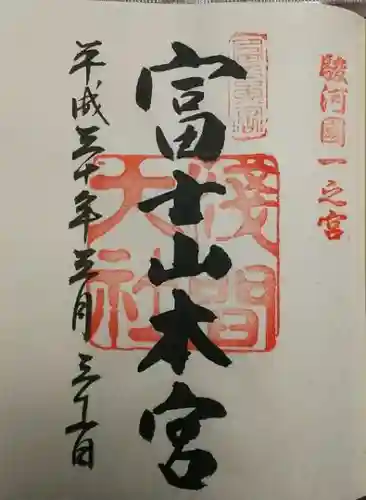 駿河國一之宮
富士山本宮
淺間大社
平成三十年三月三十日